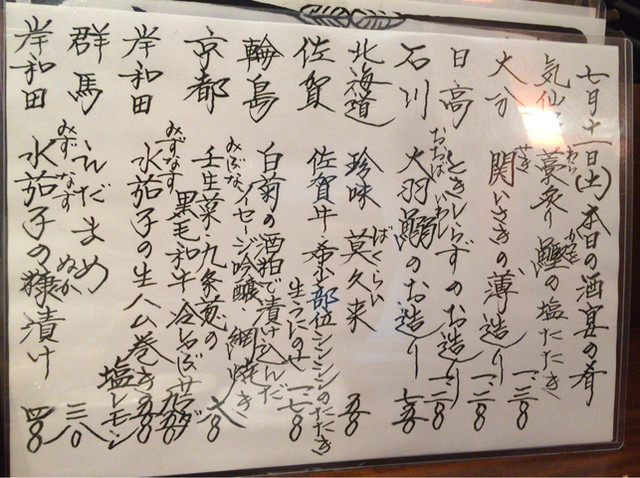 七月十一日(土) 本日の酒宴の肴
気仙 藁炙り 鰹の塩たたき 一、二八〇
わら かつを
大分 関いさきの薄造り 一、二八〇
せき
日高 ときしらずのお造り 一、二八〇
石川 大羽鰯のお造り 七八〇
おおば いわし
北海道 珍味 莫久来
ばくらい
佐賀 佐賀牛 希少部位シンシンのたたき
生うにのせ 一、七八〇
輪島 白菊の酒粕で漬け込んだ
イセージ吟醸、網焼き
京都 みぶな 壬生菜 九条葱の
黒毛和牛 冷しゃぶサラダ
岸和田 水茄子の生ハム巻き
みずなす
塩レモン
群馬 えだまめ 三八〇
岸和田 水茄子の糠漬け 四八〇
みずなす ぬか